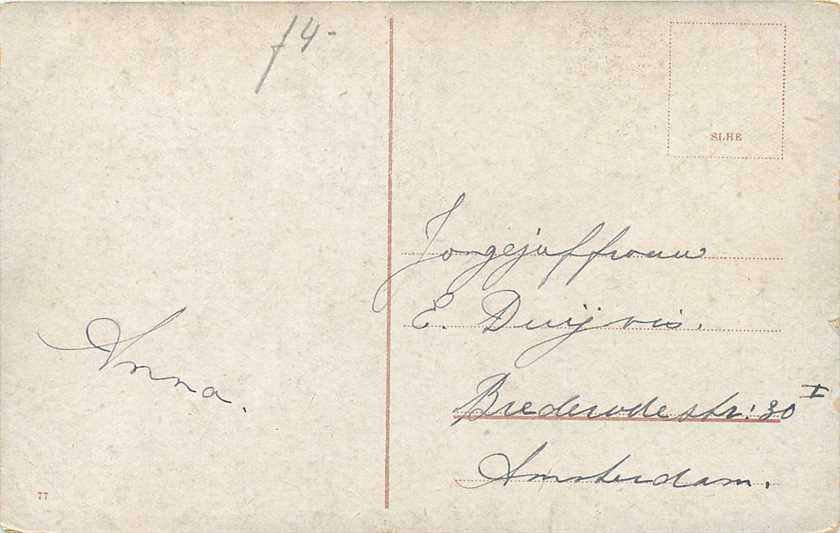 f 4-
SLHE
Jongejuffrouw
E. Duijvis.
Brederodestr: 30 I
Amsterdam.
Anna.
77